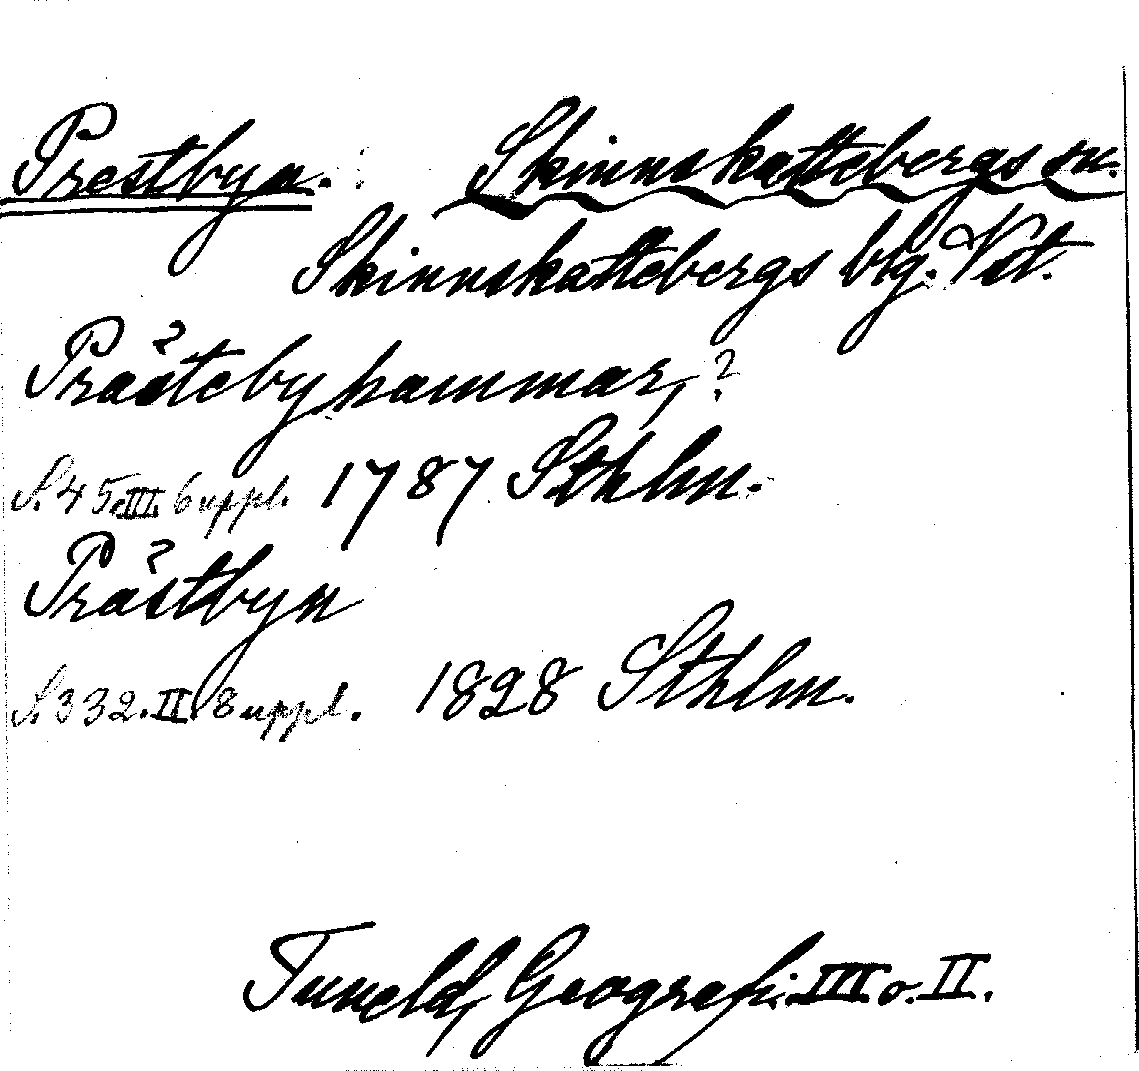 Prestbyn. Skinnskattebergs sn.
Skinnskattebergs blg. Vst.
Prästeby hammar, ?
S. 45. III. 6 uppl. 1787 Sthlm.
Prästbyn
S. 332. II. 8 uppl. 1828 Sthlm.
Tuneld, Geografi. III o. II.